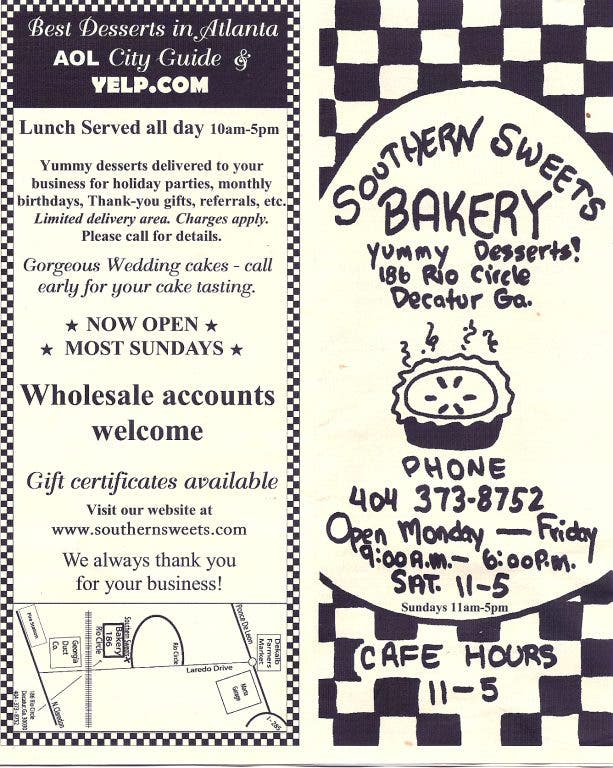 Best Desserts in Atlanta
AOL City Guide &
YELP.COM
Lunch Served all day 10am-5pm
Yummy desserts delivered to your
business for holiday parties, monthly
birthdays, Thank-you gifts, referrals, etc.
Limited delivery area. Charges apply.
Please call for details.
Gorgeous Wedding cakes - call
early for your cake tasting.
★ NOW OPEN ★
★ MOST SUNDAYS ★
Wholesale accounts
welcome
Gift certificates available
Visit our website at
www.southernsweets.com
We always thank you
for your business!
Georgia
Duct
Co.
Southern Sweets
Bakery
186
Rio Circle
Rio Circle
Ponce De Leon
Dekalb
Farmers
Market
Laredo Drive
North
Garage
I-285
N. Clarendon
186 Rio Circle
Decatur Ga 30030
404-373-8752
SOUTHERN SWEETS
BAKERY
Yummy Desserts!
186 Rio Circle
Decatur Ga.
PHONE
404 373-8752
Open Monday — Friday
9:00A.m.— 6:00P.m.
SAT. 11-5
Sundays 11am-5pm
CAFE HOURS
11-5